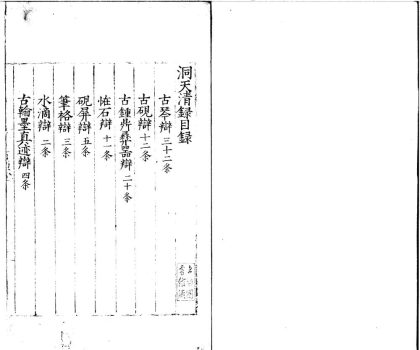 洞天清録目録
古琴辯 三十二条
古硯辯 十二条
古鍾鼎彝器辯 二十条
恠石辯 十一条
硯屏辯 五条
筆格辯 三条
水滴辯 二条
古翰墨真迹辯 四条